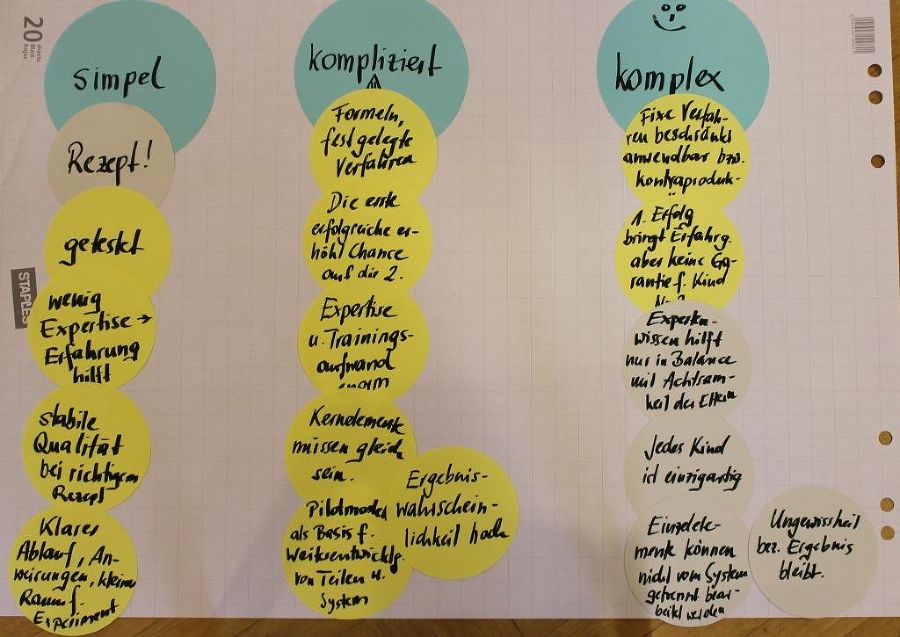 20
sheets
Blatt
feuilles
STAPLES
simpel
Rezept!
getestet
wenig
Expertise →
Erfahrung
hilft
stabile
Qualität
bei richtigem
Rezept
Klarer
Ablauf, An-
weisungen, kleiner
Raum f.
Experiment
kompliziert
Formeln,
festgelegte
Verfahren
Die erste
erfolgreiche er-
höht Chance
auf die 2.
Expertise
u. Trainings-
aufwand
enorm
Kernelemente
müssen gleich
sein.
Pilotmodell
als Basis f.
Weiterentwicklg.
von Teilen u.
System
Ergebnis-
wahrschein-
lichkeit hoch
komplex
Fixe Verfah-
ren beschränkt
anwendbar bzw.
kontraproduk-
1. Erfolg
bringt Erfahrg.
aber keine Ga-
rantie f. Kind
Nr. 2
Experten-
wissen hilft
nur in Balance
mit Achtsam-
keit der Eltern
Jedes Kind
ist einzigartig
Einzelele-
mente können
nicht vom System
getrennt bear-
beitet werden
Ungewissheit
bez. Ergebnis
bleibt.